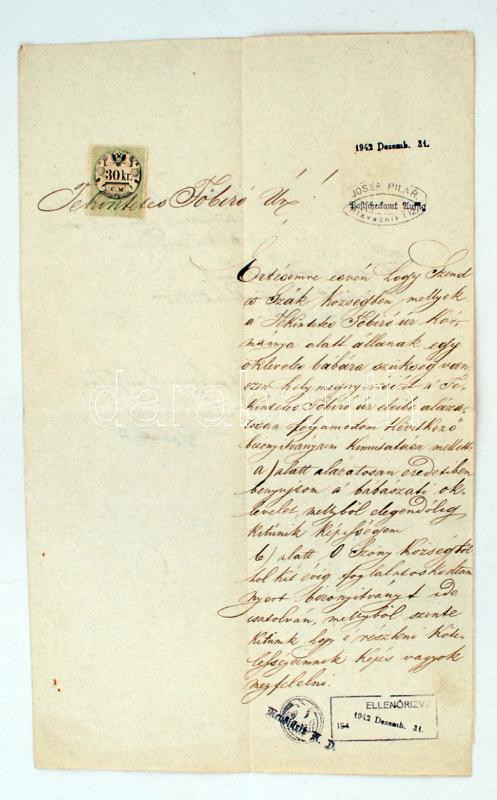 1942 Dezemb. 31.
30 kr.
C.M.
JOSEF PILAŘ
Postscheckamt Aussig
Tekintetes Főbiró Úr!
Értésemre esvén hogy Szend
és Szák községben mellyek
a Tekintetes Főbiró úr kor-
mánya alatt állanak egy
okleveles bábára szükség van
ezen hely megnyerését a Te-
kintetes Főbiró úr előtt aláza-
tosan folyamodom következő
bizonyitványaim kimutatása mellett
a) alatt alázatosan eredetiben
benyujtom a bábászati ok-
levelet, mellyből elegendőleg
kitünik képességem
b) alatt O Szőny községtől
hol két évig foglalatoskodtam
nyert bizonyitványt ide
csatolván, mellyből szinte
kitünik hogy e részbeni köte-
lességeimnek képes vagyok
megfelelni.
ELLENŐRIZVE
194
1942 Dezemb. 31.
darabanth